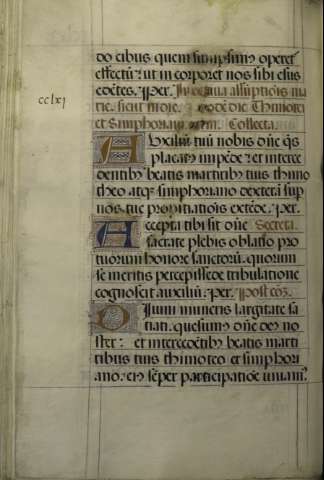 do cibus quem sumpsim9 operet
effectū: ut in corporet nos sibi eius
cōtes. Per. In octaua assūptiōis ma
rie. sicut in die. Eodē die Thimotei
et Simphoriani Collecta.
cclxi
Auxiliū tuū nobis dn̄e q̄s
placatꝰ impēde: et interce
dentibꝰ beatis martiribꝰ tuis thimo
theo atq3 simphoriano dexterā sup
nos tue propitiatiōis extēde. Per.
Accepta tibi sit dn̄e Secreta.
sacrate plebis oblatio pro
tuorum honore sanctorū. quorum
se meritis percepisse de tribulatione
cognoscit auxiliū. Per. Post cō.
Diuini muneris largitate sa
tiati. quesumꝰ dn̄e deꝰ no
ster: et intercedētibꝰ beatis marti
ribus tuis thimoteo et simphori
ano. in sēper participatiōe uiuamꝰ.